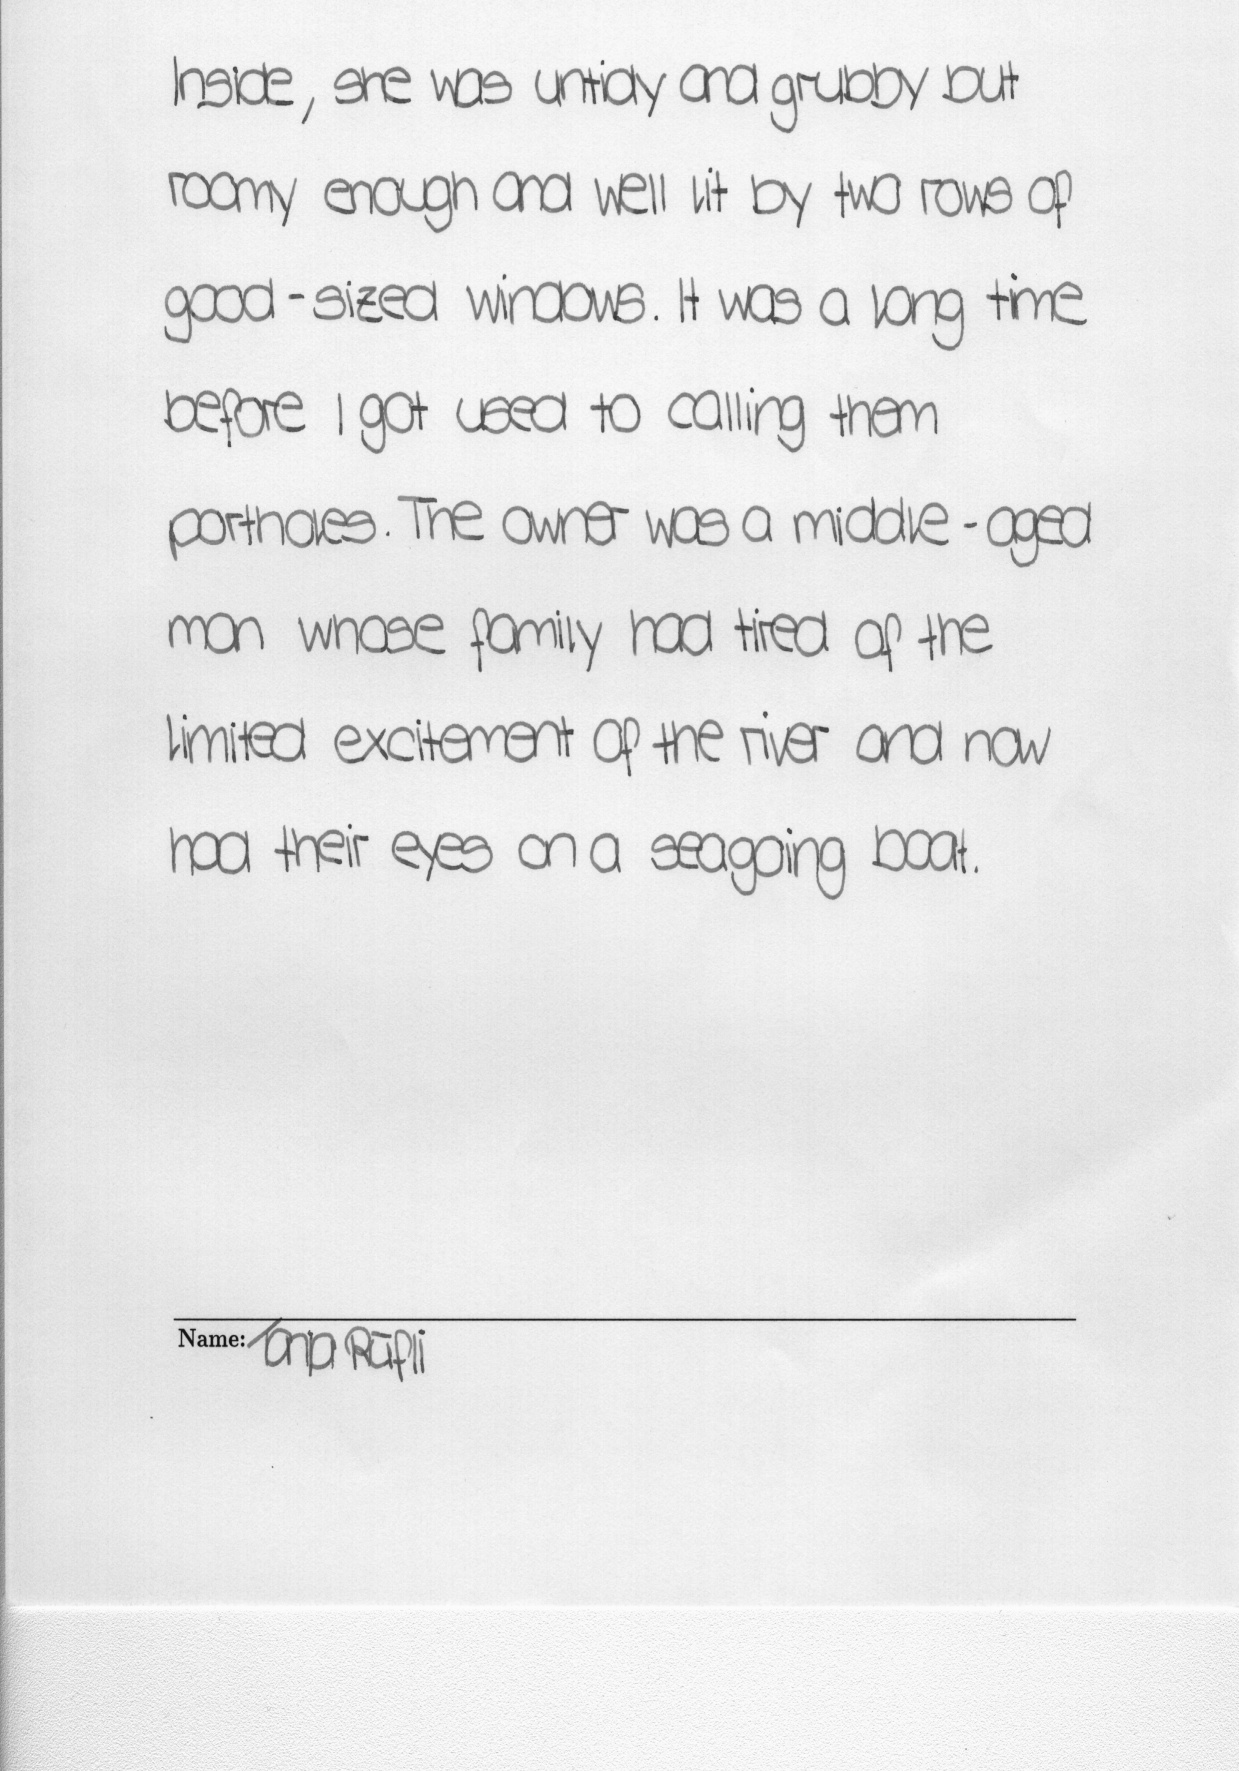 Inside, she was untidy and grubby but
roomy enough and well lit by two rows of
good-sized windows. It was a long time
before I got used to calling them
portholes. The owner was a middle-aged
man whose family had tired of the
limited excitement of the river and now
had their eyes on a seagoing boat.
Name: Tanja Rüfli